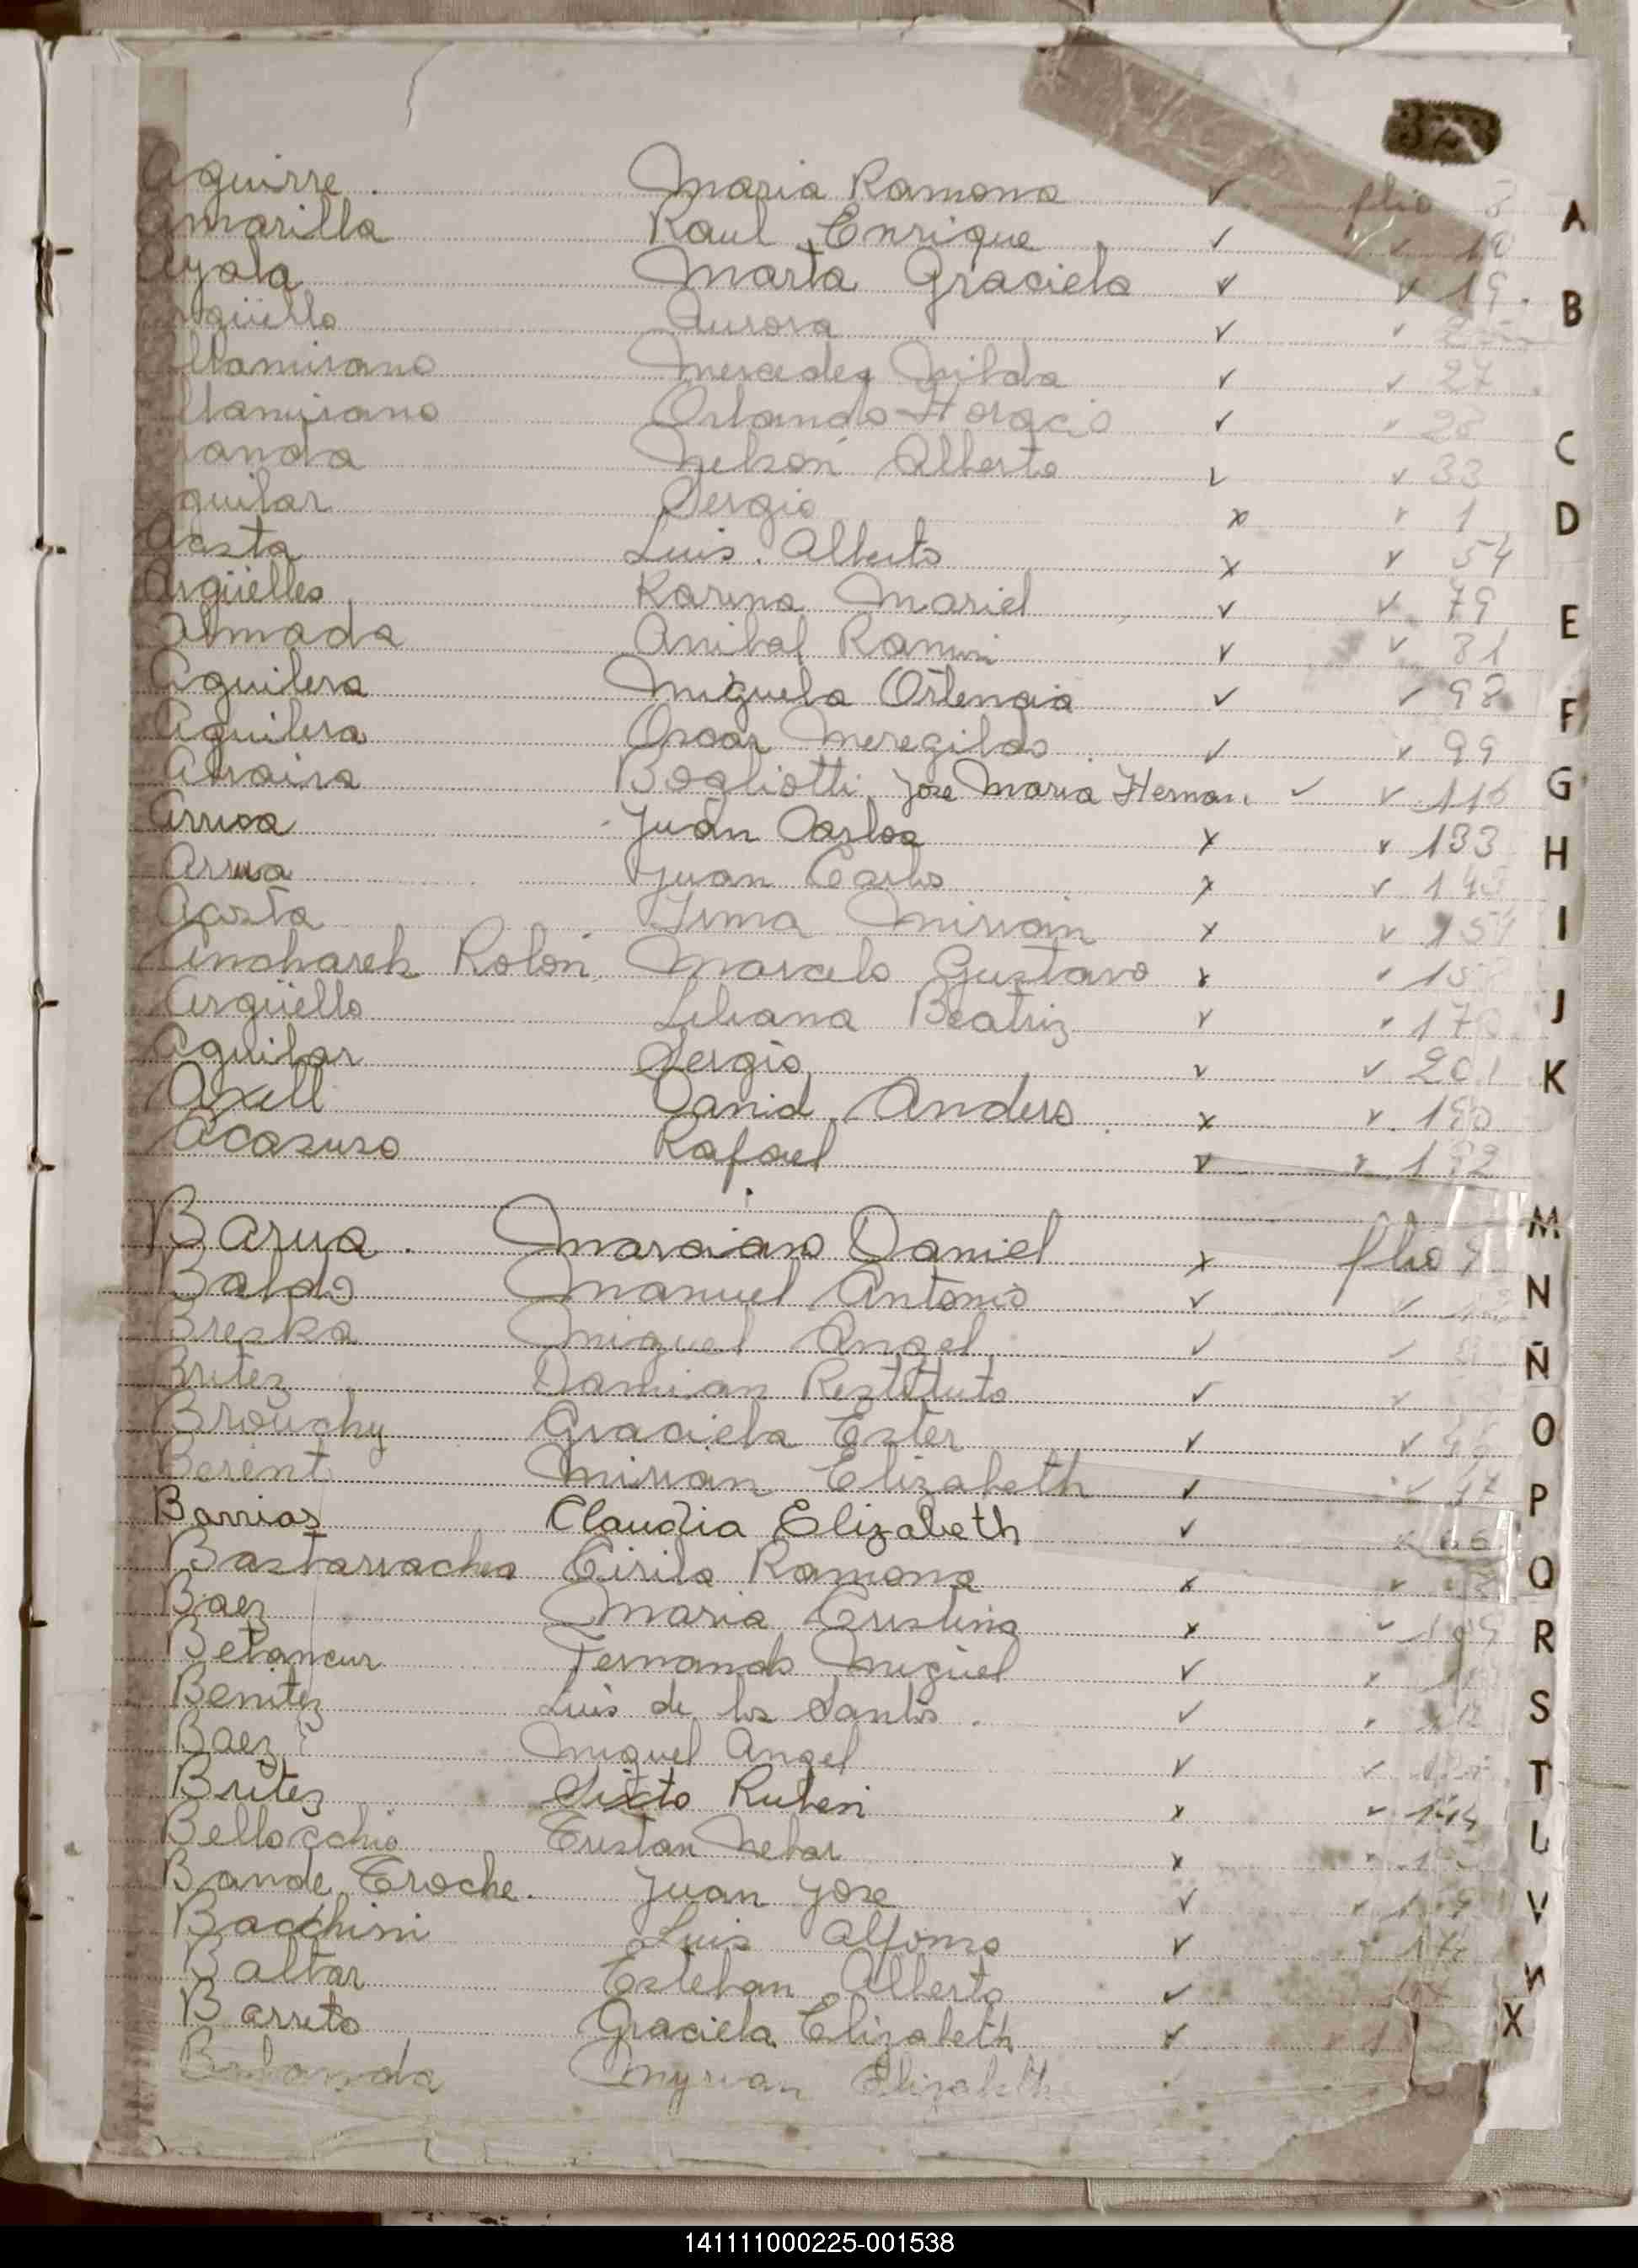 Aguirre. Maria Ramona ✓ flio 3
Amarilla Raul Enrique ✓ ✓ 10
Ayala Marta Graciela ✓ ✓ 19.
Argüello Aurora ✓ ✓
Altamirano Mercedes Nilda ✓ ✓ 27
Altamirano Orlando Horacio ✓ ✓ 28
Aranda Nelson Alberto ✓ ✓ 33
Aguilar Sergio x ✓ 1
Acosta Luis. Alberto x ✓ 54
Argüelles Karina Mariel ✓ ✓ 79
Almada Anibal Ramon ✓ ✓ 81
Aguilera Miguela Ortencia ✓ ✓ 98
Aguilera Oscar Meregildo ✓ ✓ 99
Bogliotti Jose Maria Hernan ✓ ✓ 116
Arrua Juan Carlos x ✓ 133
Arrua Juan Carlos x ✓ 143
Acosta Irma Mirian x ✓ 154
Ancharek Rolon Marcelo Gustavo x ✓
Argüello Liliana Beatriz ✓ ✓ 170
Aguilar Sergio ✓ ✓ 201
Axell David Anders x ✓ 190
Acasuso Rafael ✓ ✓ 192
Barua. Marciano Daniel x flio 9
Baldo Manuel Antonio ✓ ✓
Breska Miguel Angel ✓ ✓
Britez Damian Restituto ✓ ✓
Brouchy Graciela Ester ✓ ✓ 46
Berent Mirian Elizabeth ✓ ✓ 47
Barrios Claudia Elizabeth ✓ ✓ 66
Bastarrachea Cirila Ramona x ✓
Baez Maria Cristina x ✓ 109
Betancur Fernando Miguel ✓ ✓
Benitez Luis de los Santos. ✓ ✓ 112
Baez Miguel Angel ✓ ✓
Britez Sixto Ruben x ✓ 144
Bellocchio Cristan Nehar x
Bande Troche. Juan Jose ✓ ✓
Bacchini Luis Alfonso ✓ ✓
Baltar Esteban Alberto ✓
Barreto Graciela Elizabeth ✓ ✓
Myrian Elizabeth ✓
A
B
C
D
E
F
G
H
I
J
K
M
N
Ñ
O
P
Q
R
S
T
U
V
W
X
141111000225-001538